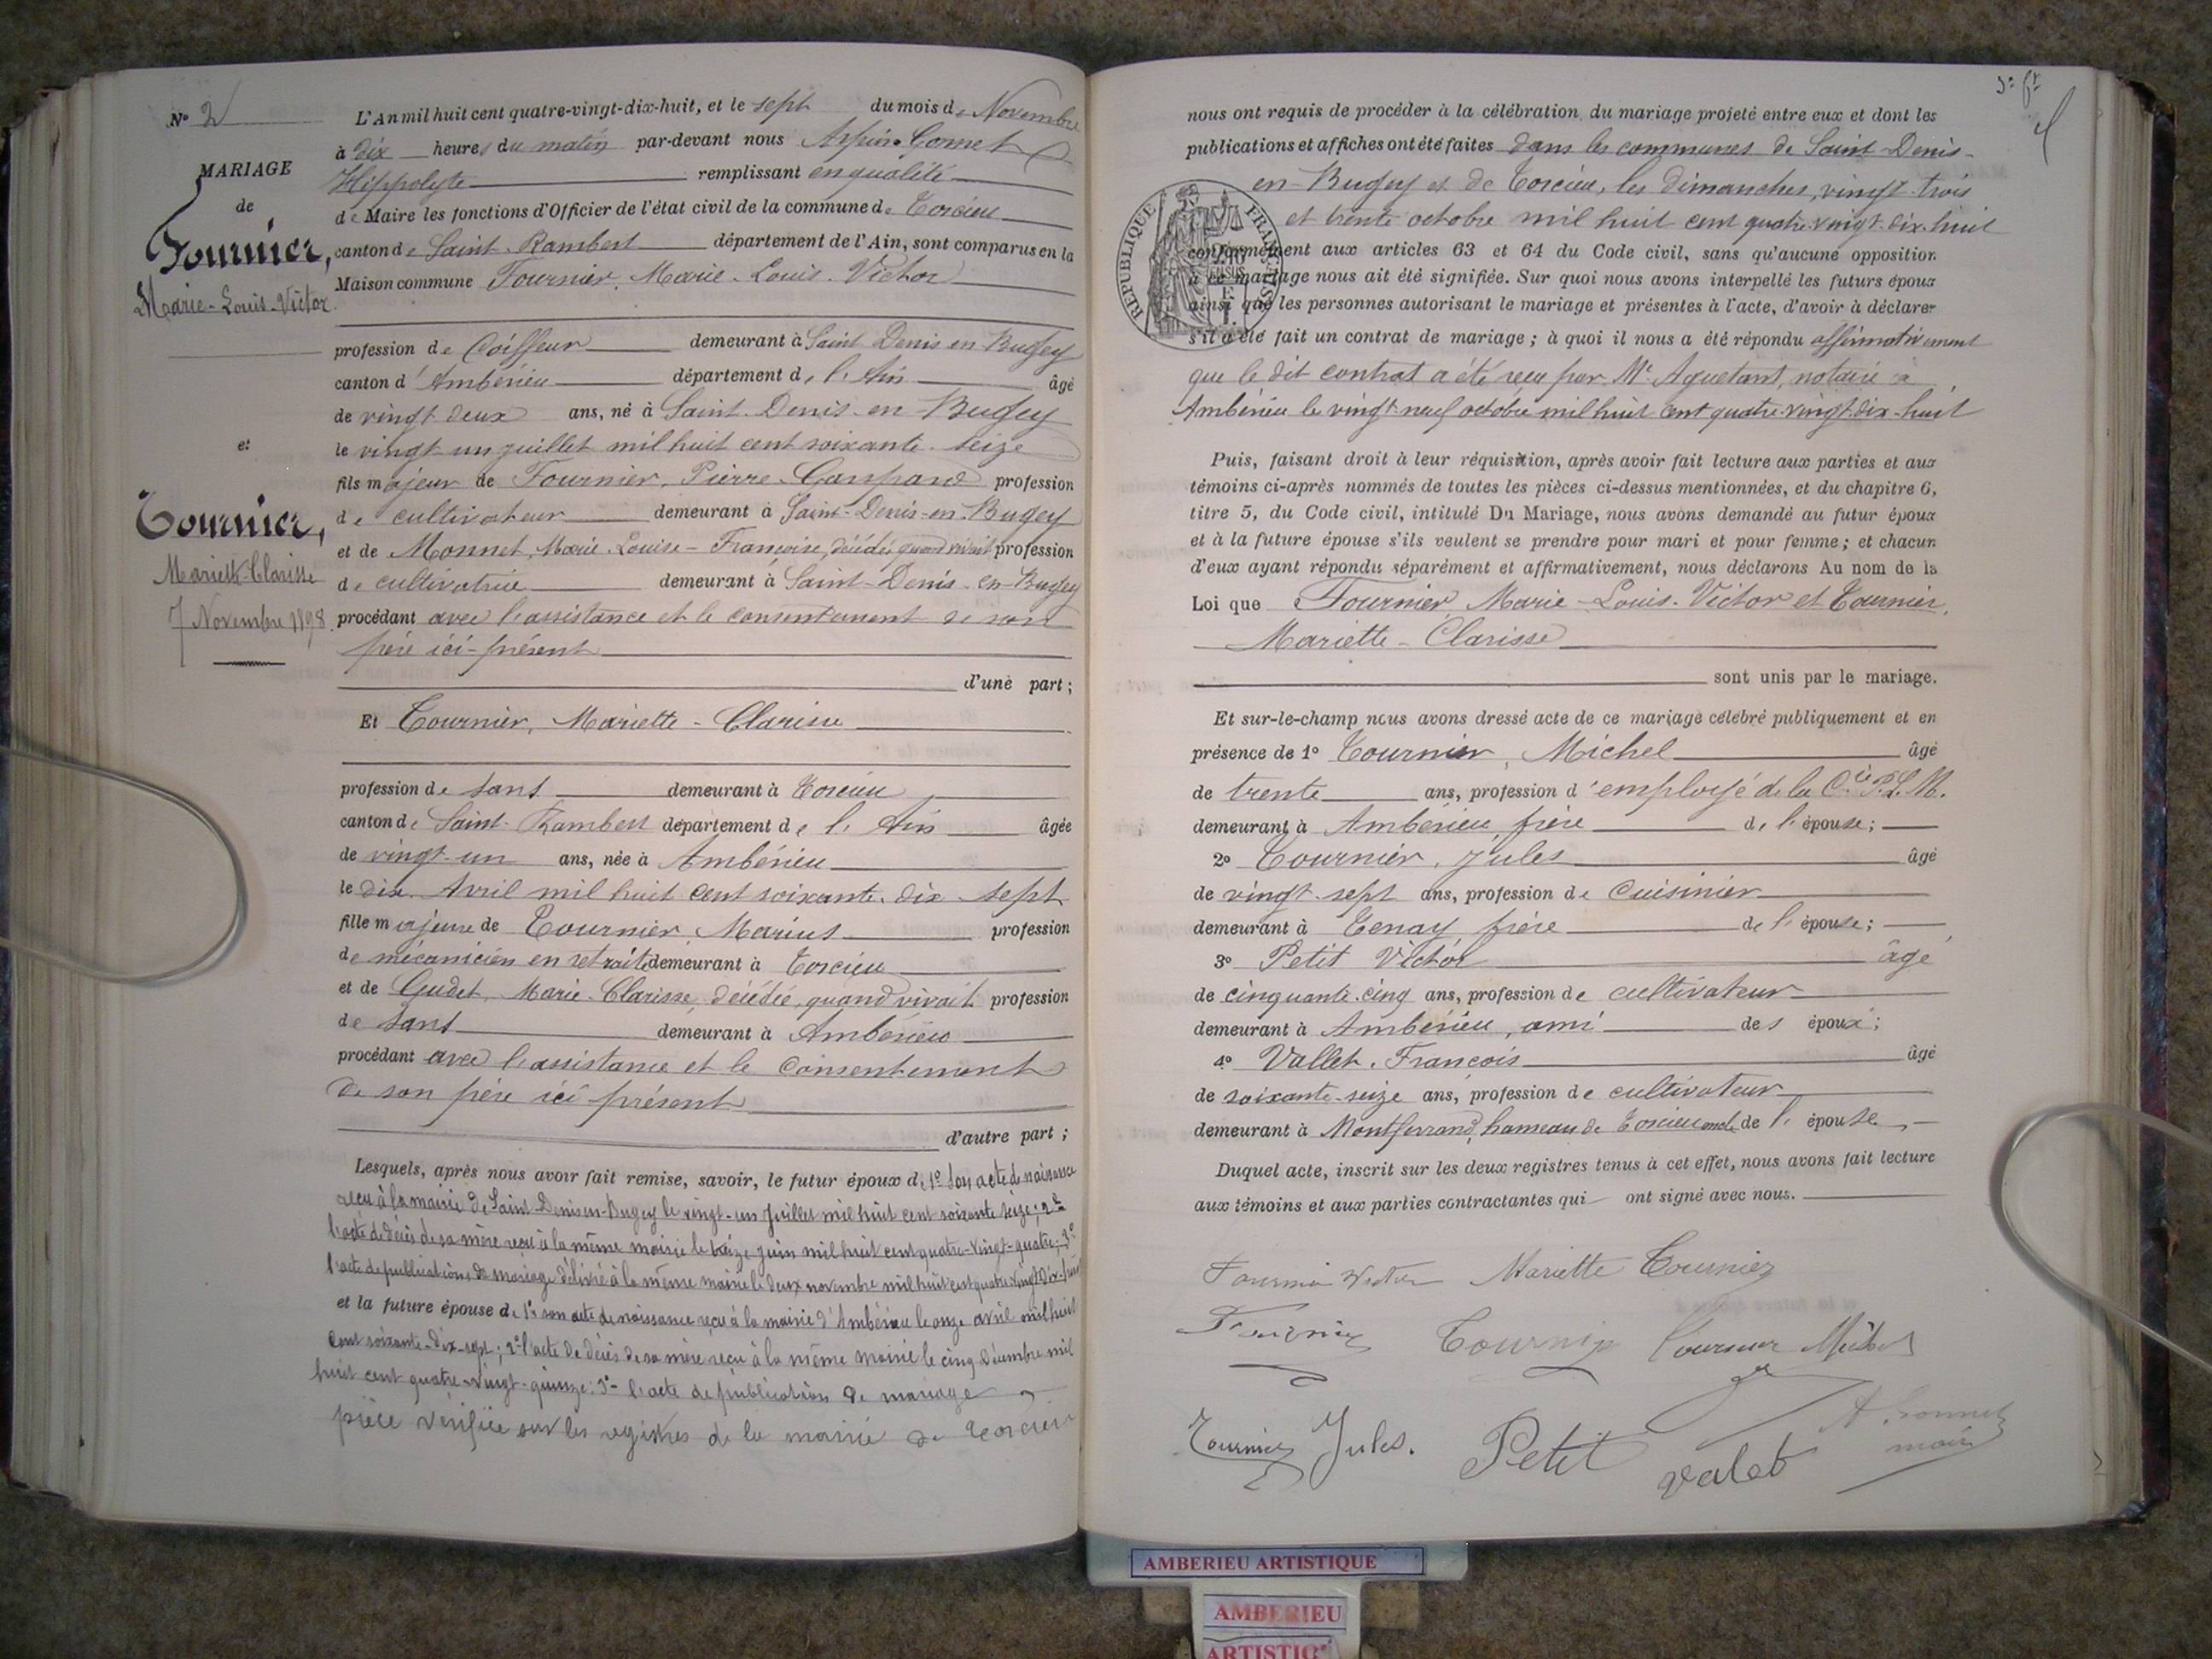 N° 2
MARIAGE
de
Fournier,
Marie-Louis-Victor
et
Tournier,
Mariette-Clarisse
7 Novembre 1898.
L'An mil huit cent quatre-vingt-dix-huit, et le sept du mois de Novembre
à dix heures du matin par-devant nous Arpin-Gonnet
Hippolyte remplissant en qualité
de Maire les fonctions d'Officier de l'état civil de la commune de Torcieu
canton de Saint-Rambert département de l'Ain, sont comparus en la
Maison commune Fournier, Marie-Louis-Victor
profession de Coiffeur demeurant à Saint Denis en Bugey
canton d'Ambérieu département de l'Ain âgé
de vingt deux ans, né à Saint-Denis-en-Bugey
le vingt un juillet mil huit cent soixante-seize
fils majeur de Fournier, Pierre-Gaspard profession
de cultivateur demeurant à Saint-Denis-en-Bugey
et de Monnet, Marie-Louise-Françoise, décédée, quand vivait profession
de cultivatrice demeurant à Saint-Denis-en-Bugey
procédant avec l'assistance et le consentement de son
père ici-présent
d'une part;
Et Tournier, Mariette-Clarisse
profession de sans demeurant à Torcieu
canton de Saint-Rambert département de l'Ain âgée
de vingt-un ans, née à Ambérieu
le dix Avril mil huit cent soixante-dix-sept
fille majeure de Tournier, Marius profession
de mécanicien en retraite demeurant à Torcieu
et de Gudet, Marie-Clarisse, décédée, quand vivait profession
de sans demeurant à Ambérieu
procédant avec l'assistance et le consentement
de son père ici-présent
d'autre part;
Lesquels, après nous avoir fait remise, savoir, le futur époux de 1° son acte de naissance
reçu à la mairie de Saint-Denis-en-Bugey le vingt-un Juillet mil huit cent soixante seize; 2°
l'acte de décès de sa mère reçu à la même mairie le treize juin mil huit cent quatre-vingt-quatre; 3°
l'acte de publications de mariage délivré à la même mairie le deux novembre mil huit cent quatre vingt dix-huit
et la future épouse de 1° son acte de naissance reçu à la mairie d'Ambérieu le onze avril mil huit
cent soixante-dix-sept; 2° l'acte de décès de sa mère reçu à la même mairie le cinq Décembre mil
huit cent quatre-vingt-quinze; 3° l'acte de publication de mariage
pièce vérifiée sur les registres de la mairie de Torcieu
nous ont requis de procéder à la célébration du mariage projeté entre eux et dont les
publications et affiches ont été faites dans les communes de Saint-Denis-
en-Bugey et de Torcieu, les dimanches, vingt-trois
et trente octobre mil huit cent quatre-vingt-dix-huit
conformément aux articles 63 et 64 du Code civil, sans qu'aucune opposition
à ce mariage nous ait été signifiée. Sur quoi nous avons interpellé les futurs époux
ainsi que les personnes autorisant le mariage et présentes à l'acte, d'avoir à déclarer
s'il a été fait un contrat de mariage; à quoi il nous a été répondu affirmativement
que le dit contrat a été reçu par Me Aguetant, notaire à
Ambérieu le vingt neuf octobre mil huit cent quatre-vingt-dix-huit
REPUBLIQUE FRANÇAISE
Puis, faisant droit à leur réquisition, après avoir fait lecture aux parties et aux
témoins ci-après nommés de toutes les pièces ci-dessus mentionnées, et du chapitre 6,
titre 5, du Code civil, intitulé Du Mariage, nous avons demandé au futur époux
et à la future épouse s'ils veulent se prendre pour mari et pour femme; et chacun
d'eux ayant répondu séparément et affirmativement, nous déclarons Au nom de la
Loi que Fournier, Marie-Louis-Victor et Tournier,
Mariette-Clarisse
sont unis par le mariage.
Et sur-le-champ nous avons dressé acte de ce mariage célébré publiquement et en
présence de 1° Tournier, Michel âgé
de trente ans, profession d'employé de la Cie P.L.M.
demeurant à Ambérieu, frère de l'épouse;
2° Tournier, Jules âgé
de vingt-sept ans, profession de cuisinier
demeurant à Tenay, frère de l'épouse;
3° Petit Victor âgé
de cinquante-cinq ans, profession de cultivateur
demeurant à Ambérieu, ami des époux;
4° Vallet, François âgé
de soixante-seize ans, profession de cultivateur
demeurant à Montferrand, hameau de Torcieu oncle de l'épouse
Duquel acte, inscrit sur les deux registres tenus à cet effet, nous avons fait lecture
aux témoins et aux parties contractantes qui ont signé avec nous.
Fournier Victor Mariette Tournier
Fournier Tournier Tournier Michel
Tournier Jules. Petit Valet A. Gonnet
maire
AMBERIEU ARTISTIQUE
AMBERIEU
ARTISTIQ